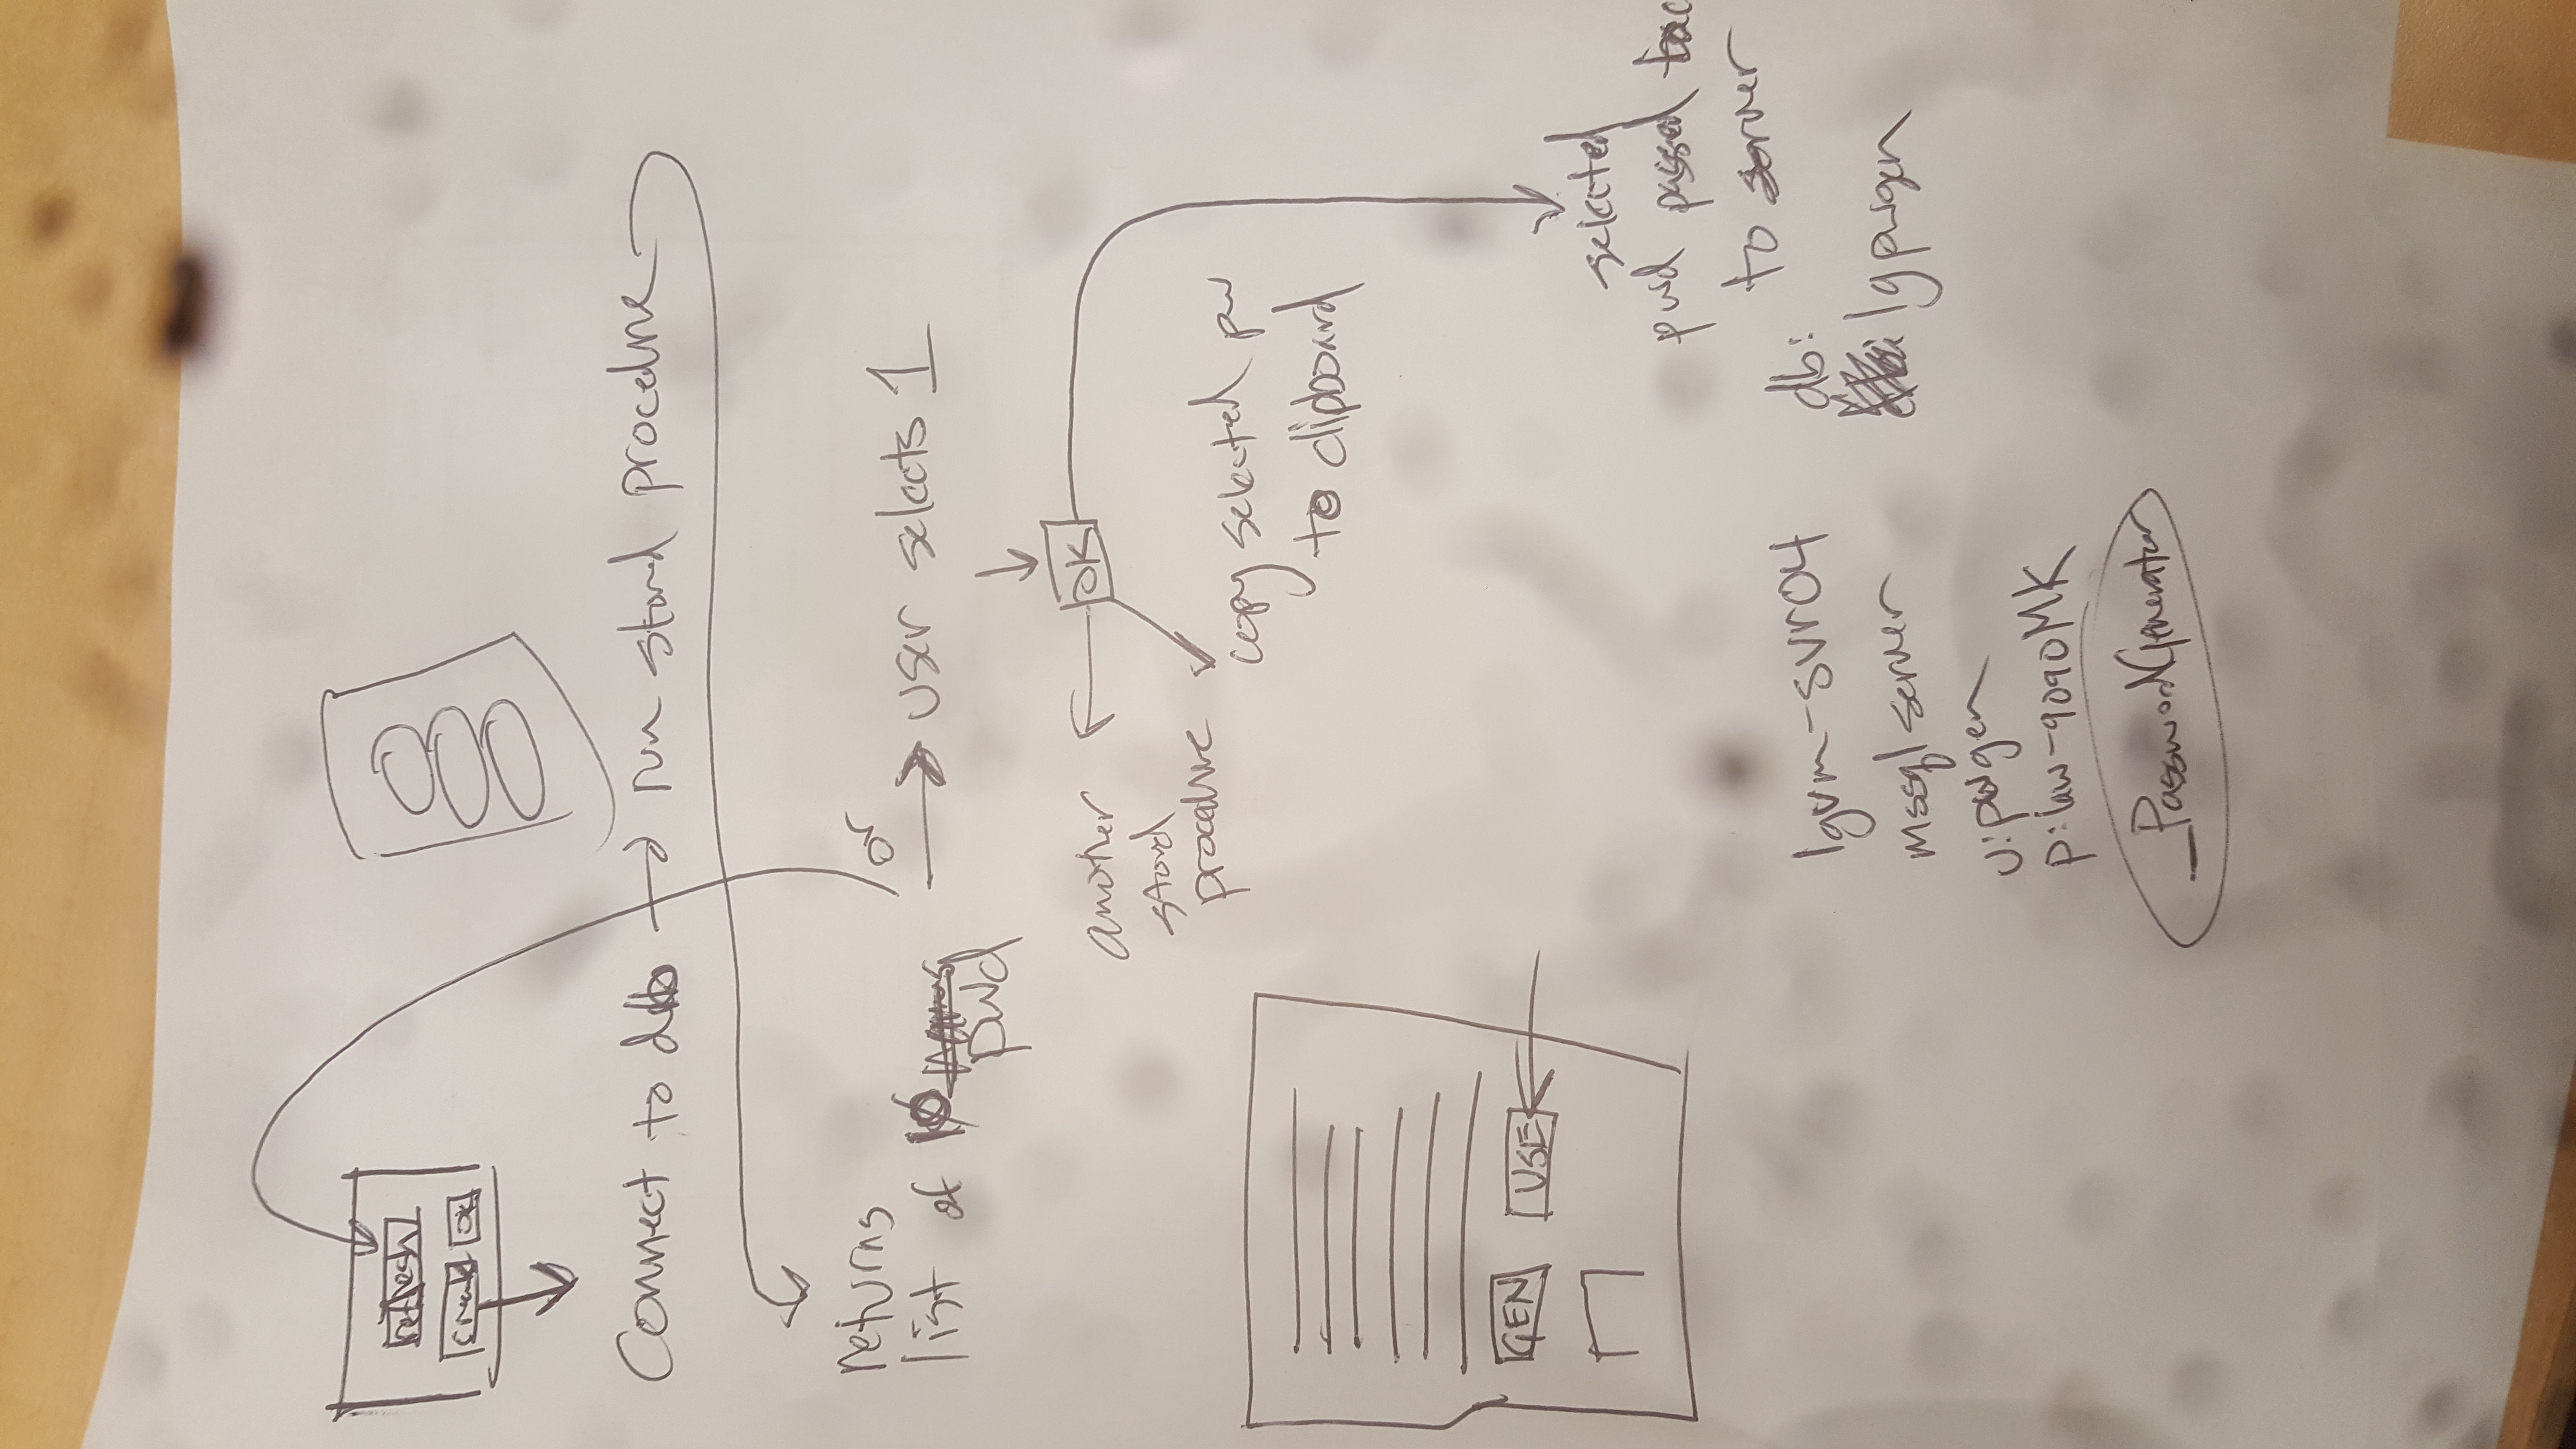 refresh
create OK
Connect to db → run stored procedure
returns
list of 10
pwd
or
user selects 1
OK
another
stored
procedure
copy selected pw
to clipboard
GEN USE
selected
pwd passed bac
to server
lgvm-svr04
mssql server
u:pwgen
p:law-9090MK
_PasswordGenerator
db:
lgpwgen